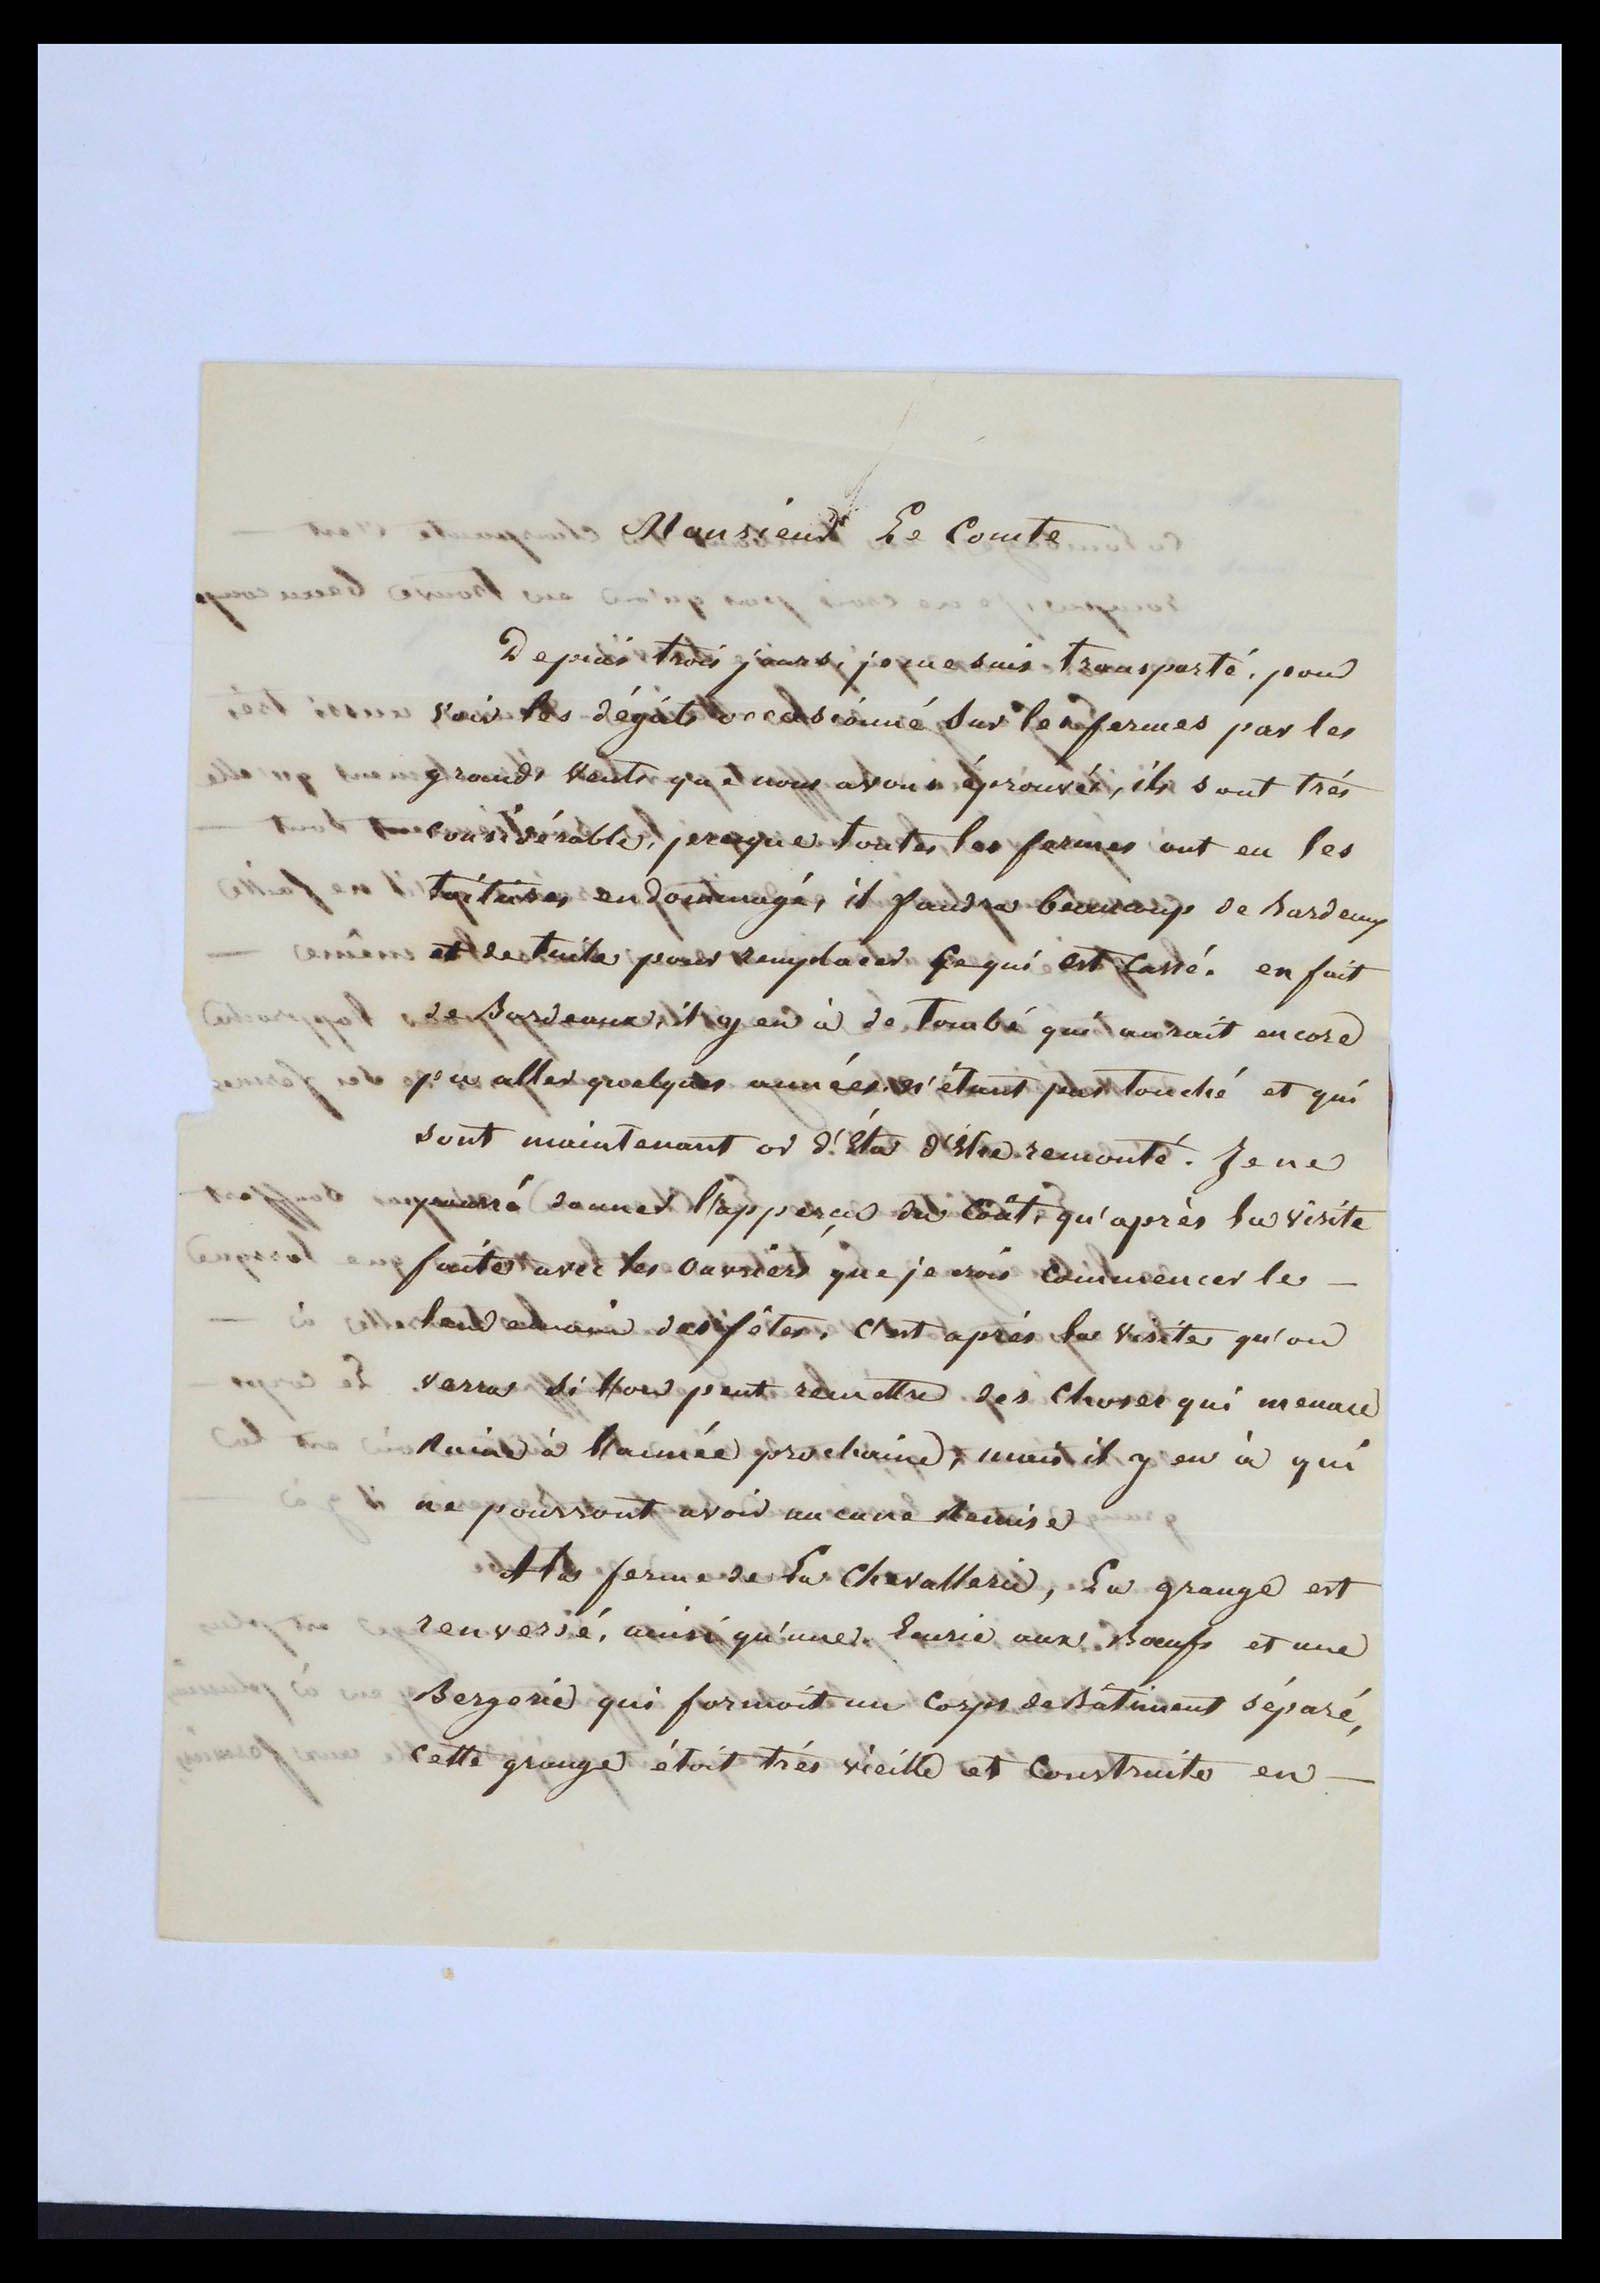 Monsieur Le Comte
Depuis trois jours, je me suis transporté, pour
voir les dégâts occasionné sur les fermes par les
grands vents que nous avons éprouvés, ils sont trés
considérable, presque toutes les fermes ont eu les
toitures endommagé, il faudra beaucoup de Bardeaux
et de tuile pour remplacer ce qui est cassé. en fait
de Bardeaux, il y en à de tombé qui aurait encore
pu aller quelques années n'étant pas touché et qui
sont maintenant or d'Éta d'être remonté. Je ne
pourré donner l'apperçu du Coût, qu'après la visite
faite avec les Ouvriers que je vois commencer le -
lendemain des fêtes, C'est aprés la visite qu'on
verra si l'on peut remettre des Choses qui menace
Ruine à l'année prochaine, mais il y en à qui
ne pourront avoir aucune Remise
A la ferme de La Chevallerie, La grange est
renversé, ainsi qu'une Eurie aux Boeufs et une
Bergerie qui formoit un Corps de Bâtiment séparé,
cette grange étoit trés vieille et Construite en -